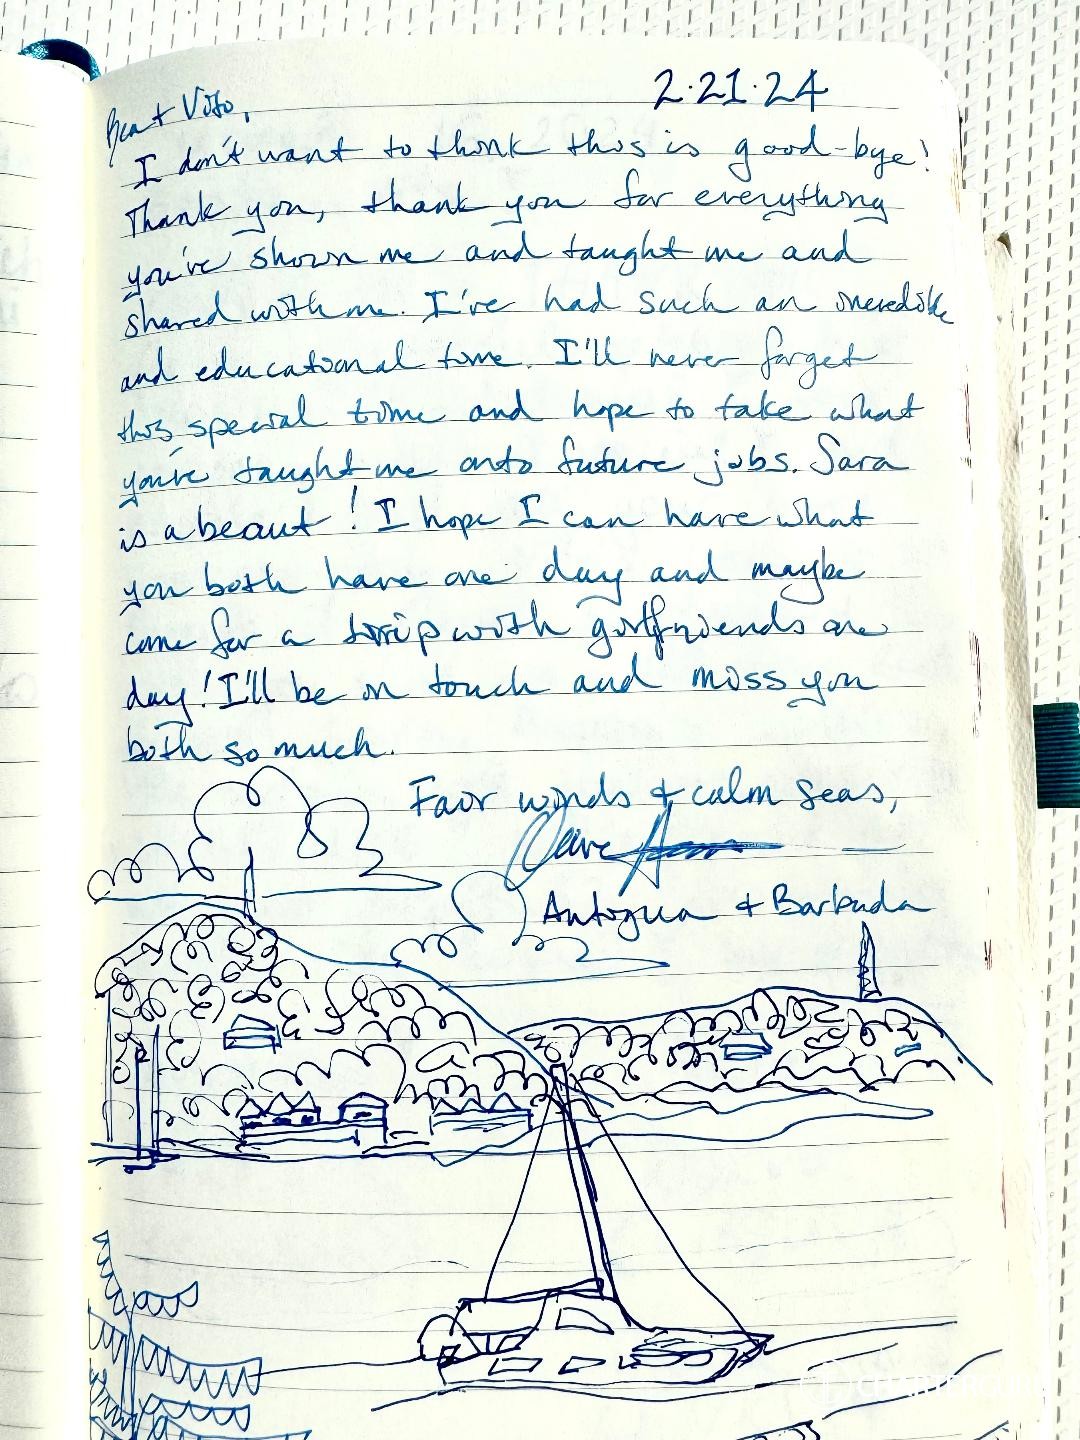 2.21.24
Bea + Vito,
I don't want to think this is good-bye!
Thank you, thank you for everything
you've shown me and taught me and
shared with me. I've had such an incredible
and educational time. I'll never forget
this special time and hope to take what
you've taught me onto future jobs. Sara
is a beaut! I hope I can have what
you both have one day and maybe
come for a trip with girlfriends one
day! I'll be in touch and miss you
both so much.
Fair winds & calm seas,
Antigua & Barbuda